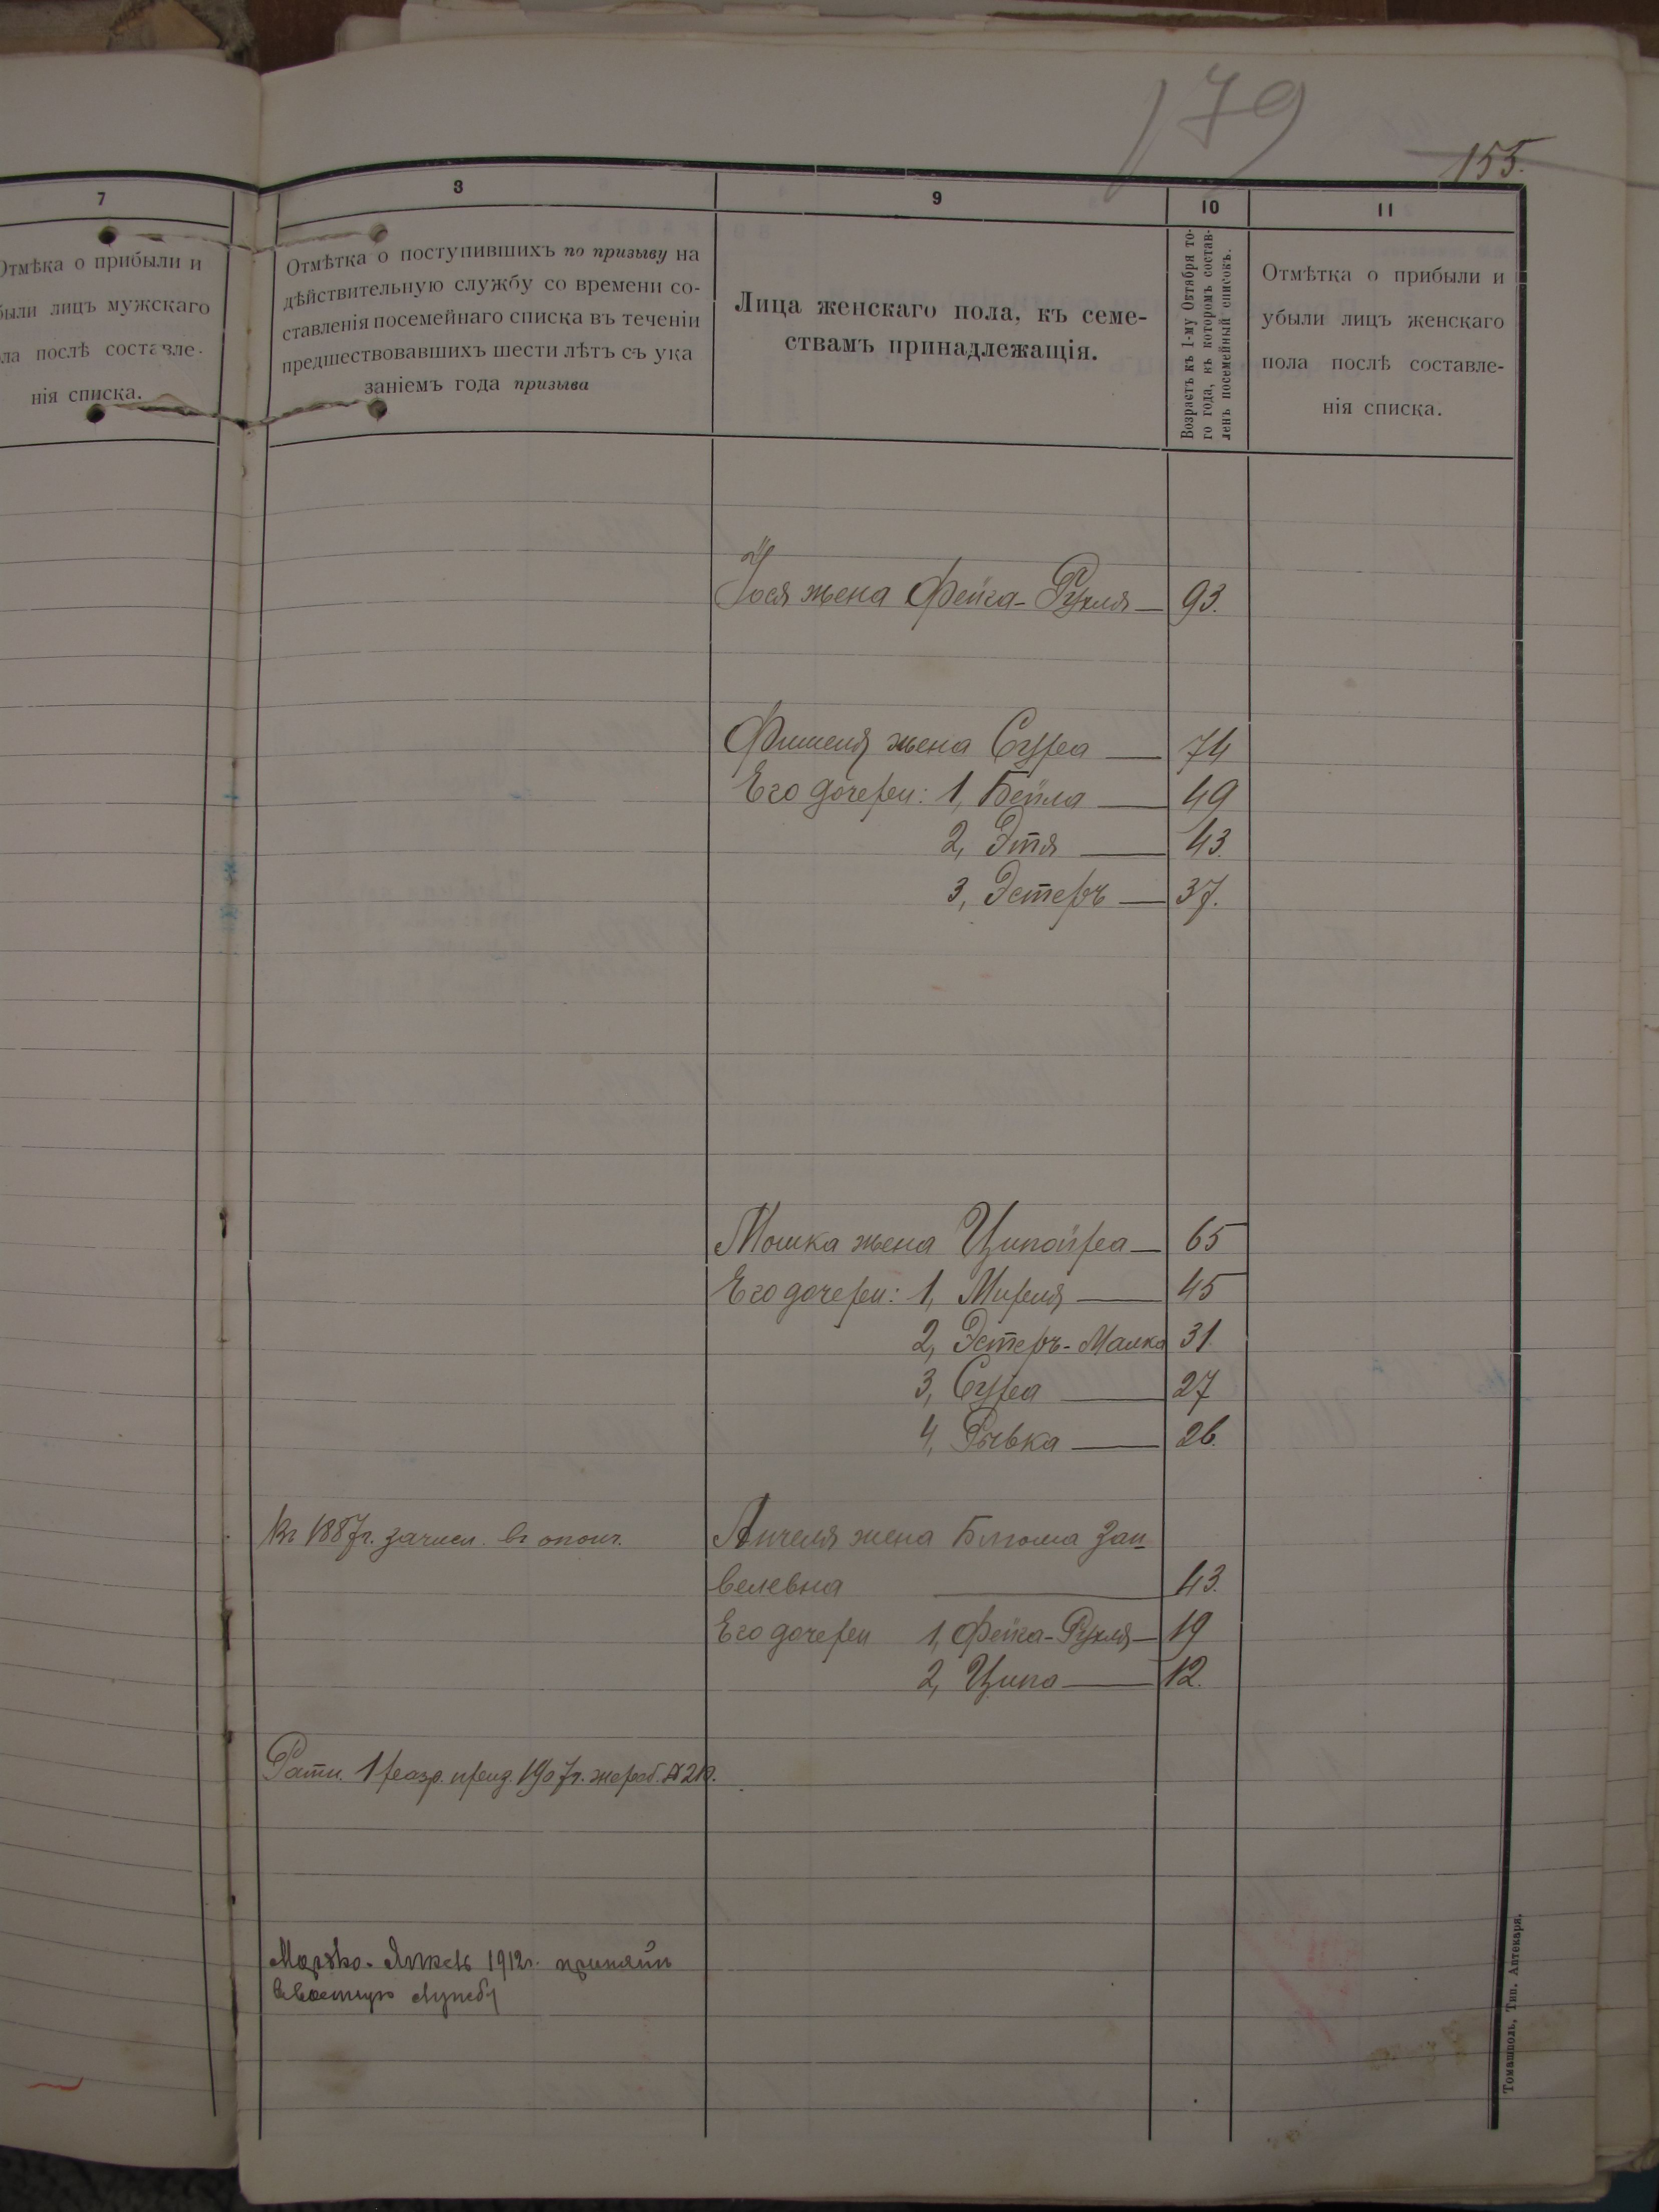 179
155.
7
8
9
10
11
Отмѣка о прибыли и
были лицъ мужскаго
ла послѣ составле-
нія списка.
Отмѣтка о поступившихъ по призыву на
дѣйствительную службу со времени со-
ставленія посемейнаго списка въ теченіи
предшествовавшихъ шести лѣтъ съ ука
заніемъ года призыва
Лица женскаго пола, къ семе-
ствамъ принадлежащія.
Возрастъ къ 1-му Октября то-
го года, къ которомъ состав-
ленъ посемейный списокъ.
Отмѣтка о прибыли и
убыли лицъ женскаго
пола послѣ составле-
нія списка.
жена Фейга-Рухля — 93.
Фишеля жена Сура — 74
Его дочери: 1, Бейла — 49
2, Этя — 43.
3, Эстеръ — 37.
Мошка жена Ципойра — 65
Его дочери: 1, Миреля — 45
2, Эстеръ-Малка 31.
3, Сура — 27
4, Рывка — 26.
Въ 1887г. зачисл. въ ополч.
Анчеля жена Блюма Зан-
велевна — 43.
Его дочери 1, Фейга-Рухля — 19
2, Ципа — 12.
Ратн. 1 разр. приз. 1907г. жереб. №210.
Мордко-Янкель 1912г. принятъ
Томашполь, Тип. Аптекаря.